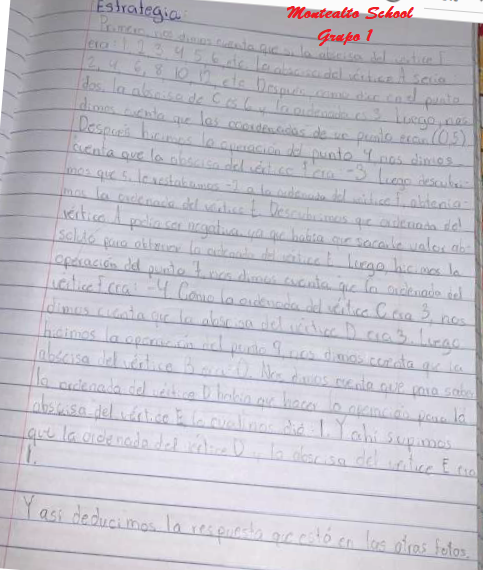 Montealto School
Grupo 1
Estrategia:
Primero, nos dimos cuenta que si la abscisa del vertice F
era: 1, 2, 3, 4, 5, 6, etc la abscisa del vértice A seria
2, 4, 6, 8, 10, 12, etc Después, como dice en el punto
dos, la abscisa de C es 6 y la ordenada es 3 Luego, nos
dimos cuenta que las coordenadas de un punto eran (0,5)
Después hicimos la operación del punto 4 nos dimos
cuenta que la abscisa del vértice era -3 Luego descubri-
mos que si le restabamos -2 a la ordenada del vértice F, obtenia-
mos la ordenada del vertice E Descubrimos que ordenada del
vértice A podia ser negativa, ya que habia que sacarle valor ab-
soluto para obtener la ordenada del vértice Luego, hicimos la
operación del punto 7 nos dimos cuenta que la ordenada del
vértice F era: -4 Como la ordenada del vértice C era 3, nos
dimos cuenta que la abscisa del vértice D era 3. Luego
hicimos la operación del punto 9, nos dimos cuenta que la
abscisa del vértice B era: 0. Nos dimos cuenta que para saber
la ordenada del vértice D habia que hacer la operación para la
abscisa del vértice E la cual nos dió 1. Y ahi supimos
que la ordenada del vértice D y la abscisa del vértice E era
1.
Y asi deducimos la respuesta que está en las otras fotos.